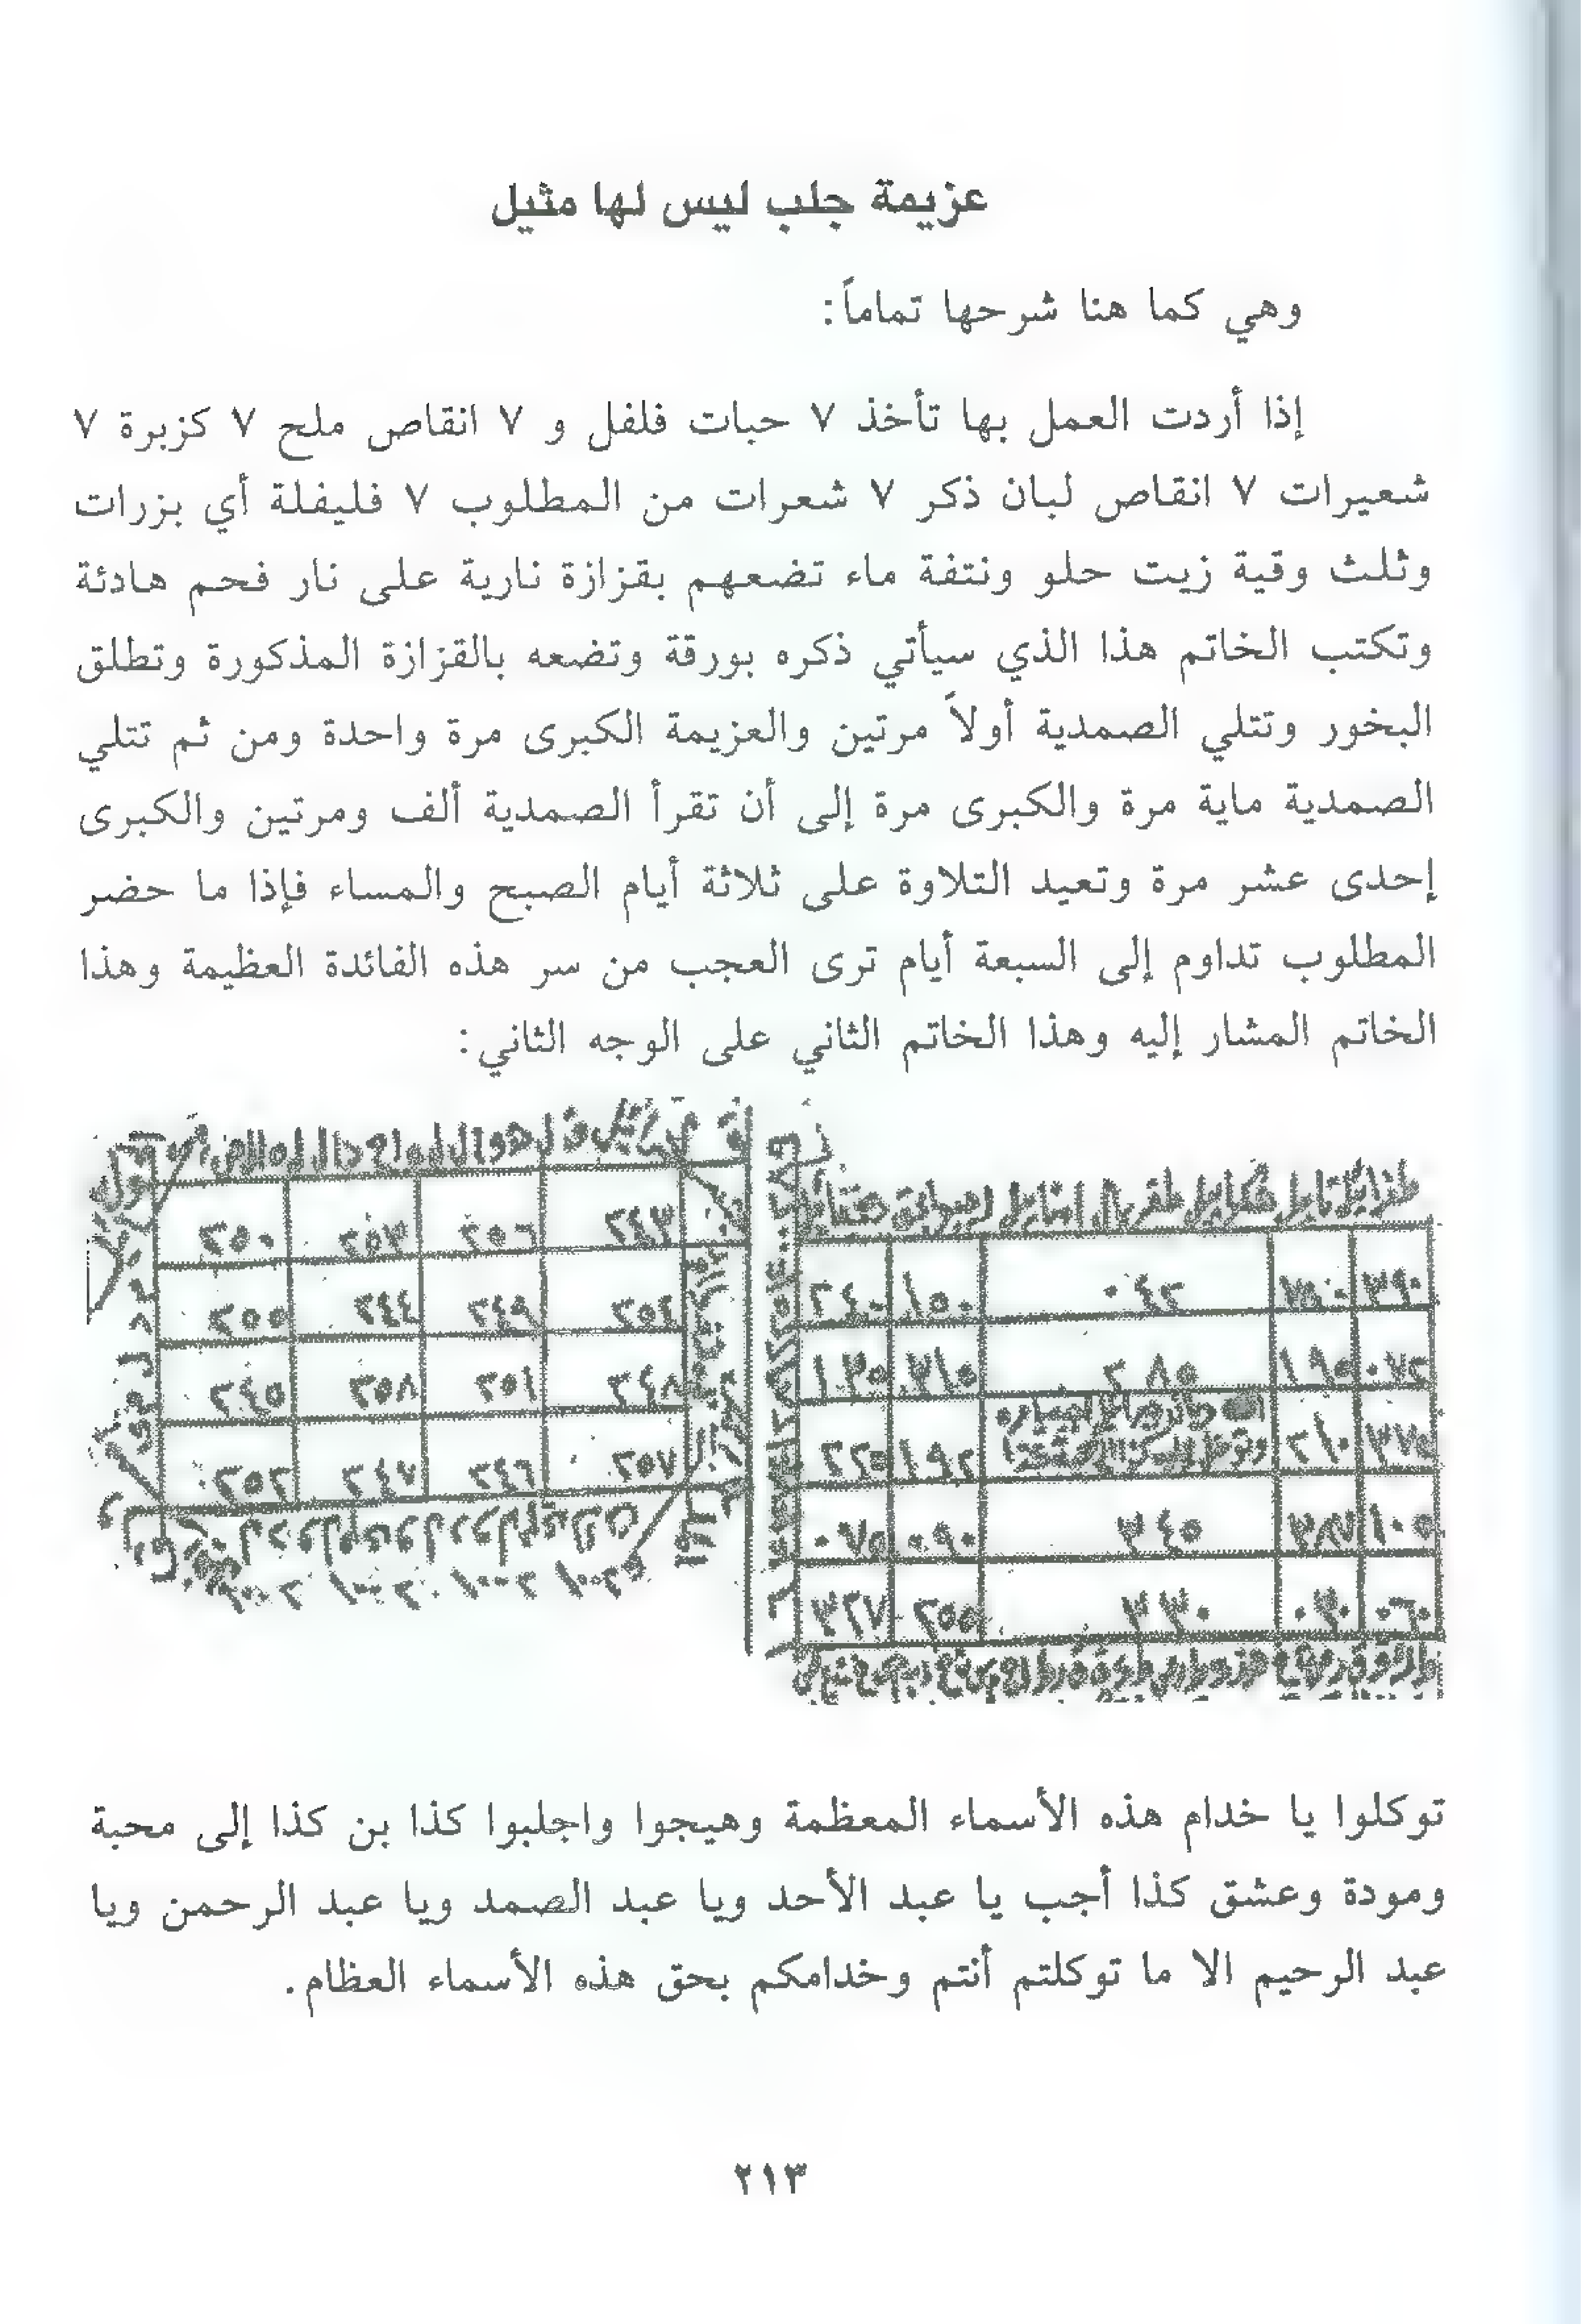 عزيمة جلب ليس لها مثيل
وهي كما هنا شرحها تماماً:
إذا أردت العمل بها تأخذ ٧ حبات فلفل و ٧ انقاص ملح ٧ كزبرة ٧
شعيرات ٧ انقاص لبان ذكر ٧ شعرات من المطلوب ٧ فليفلة أي بزرات
وثلث وقية زيت حلو ونتفة ماء تضعهم بقزازة نارية على نار فحم هادئة
وتكتب الخاتم هذا الذي سيأتي ذكره بورقة وتضعه بالقزازة المذكورة وتطلق
البخور وتتلي الصمدية أولاً مرتين والعزيمة الكبرى مرة واحدة ومن ثم تتلي
الصمدية ماية مرة والكبرى مرة إلى أن تقرأ الصمدية ألف ومرتين والكبرى
إحدى عشر مرة وتعيد التلاوة على ثلاثة أيام الصبح والمساء فإذا ما حضر
المطلوب تداوم إلى السبعة أيام ترى العجب من سر هذه الفائدة العظيمة وهذا
الخاتم المشار إليه وهذا الخاتم الثاني على الوجه الثاني:
٣٩٠ ٠٤٢ ١٥٠ ٢٤٠
٠٧٢ ١٩٥ ٢٨٥ ٣١٥ ١٣٥
٢١٠ ١٩٢ ٢٢٥
١٠٥ ٣٤٥ ٠٩٠ ٠٧٥
٠٦٠ ٠٣٠ ٣٣٠ ٢٥٥ ٣٢٧
قل هو الله احد الله الصمد
٢٤٣ ٢٥٦ ٢٥٣ ٢٥٠
٢٥٤ ٢٤٩ ٢٤٤ ٢٥٥
٢٤٨ ٢٥١ ٢٥٨ ٢٤٥
٢٥٧ ٢٤٦ ٢٤٧ ٢٥٢
توكلوا يا خدام هذه الأسماء المعظمة وهيجوا واجلبوا كذا بن كذا إلى محبة
ومودة وعشق كذا أجب يا عبد الأحد ويا عبد الصمد ويا عبد الرحمن ويا
عبد الرحيم الا ما توكلتم أنتم وخدامكم بحق هذه الأسماء العظام.
٢١٣